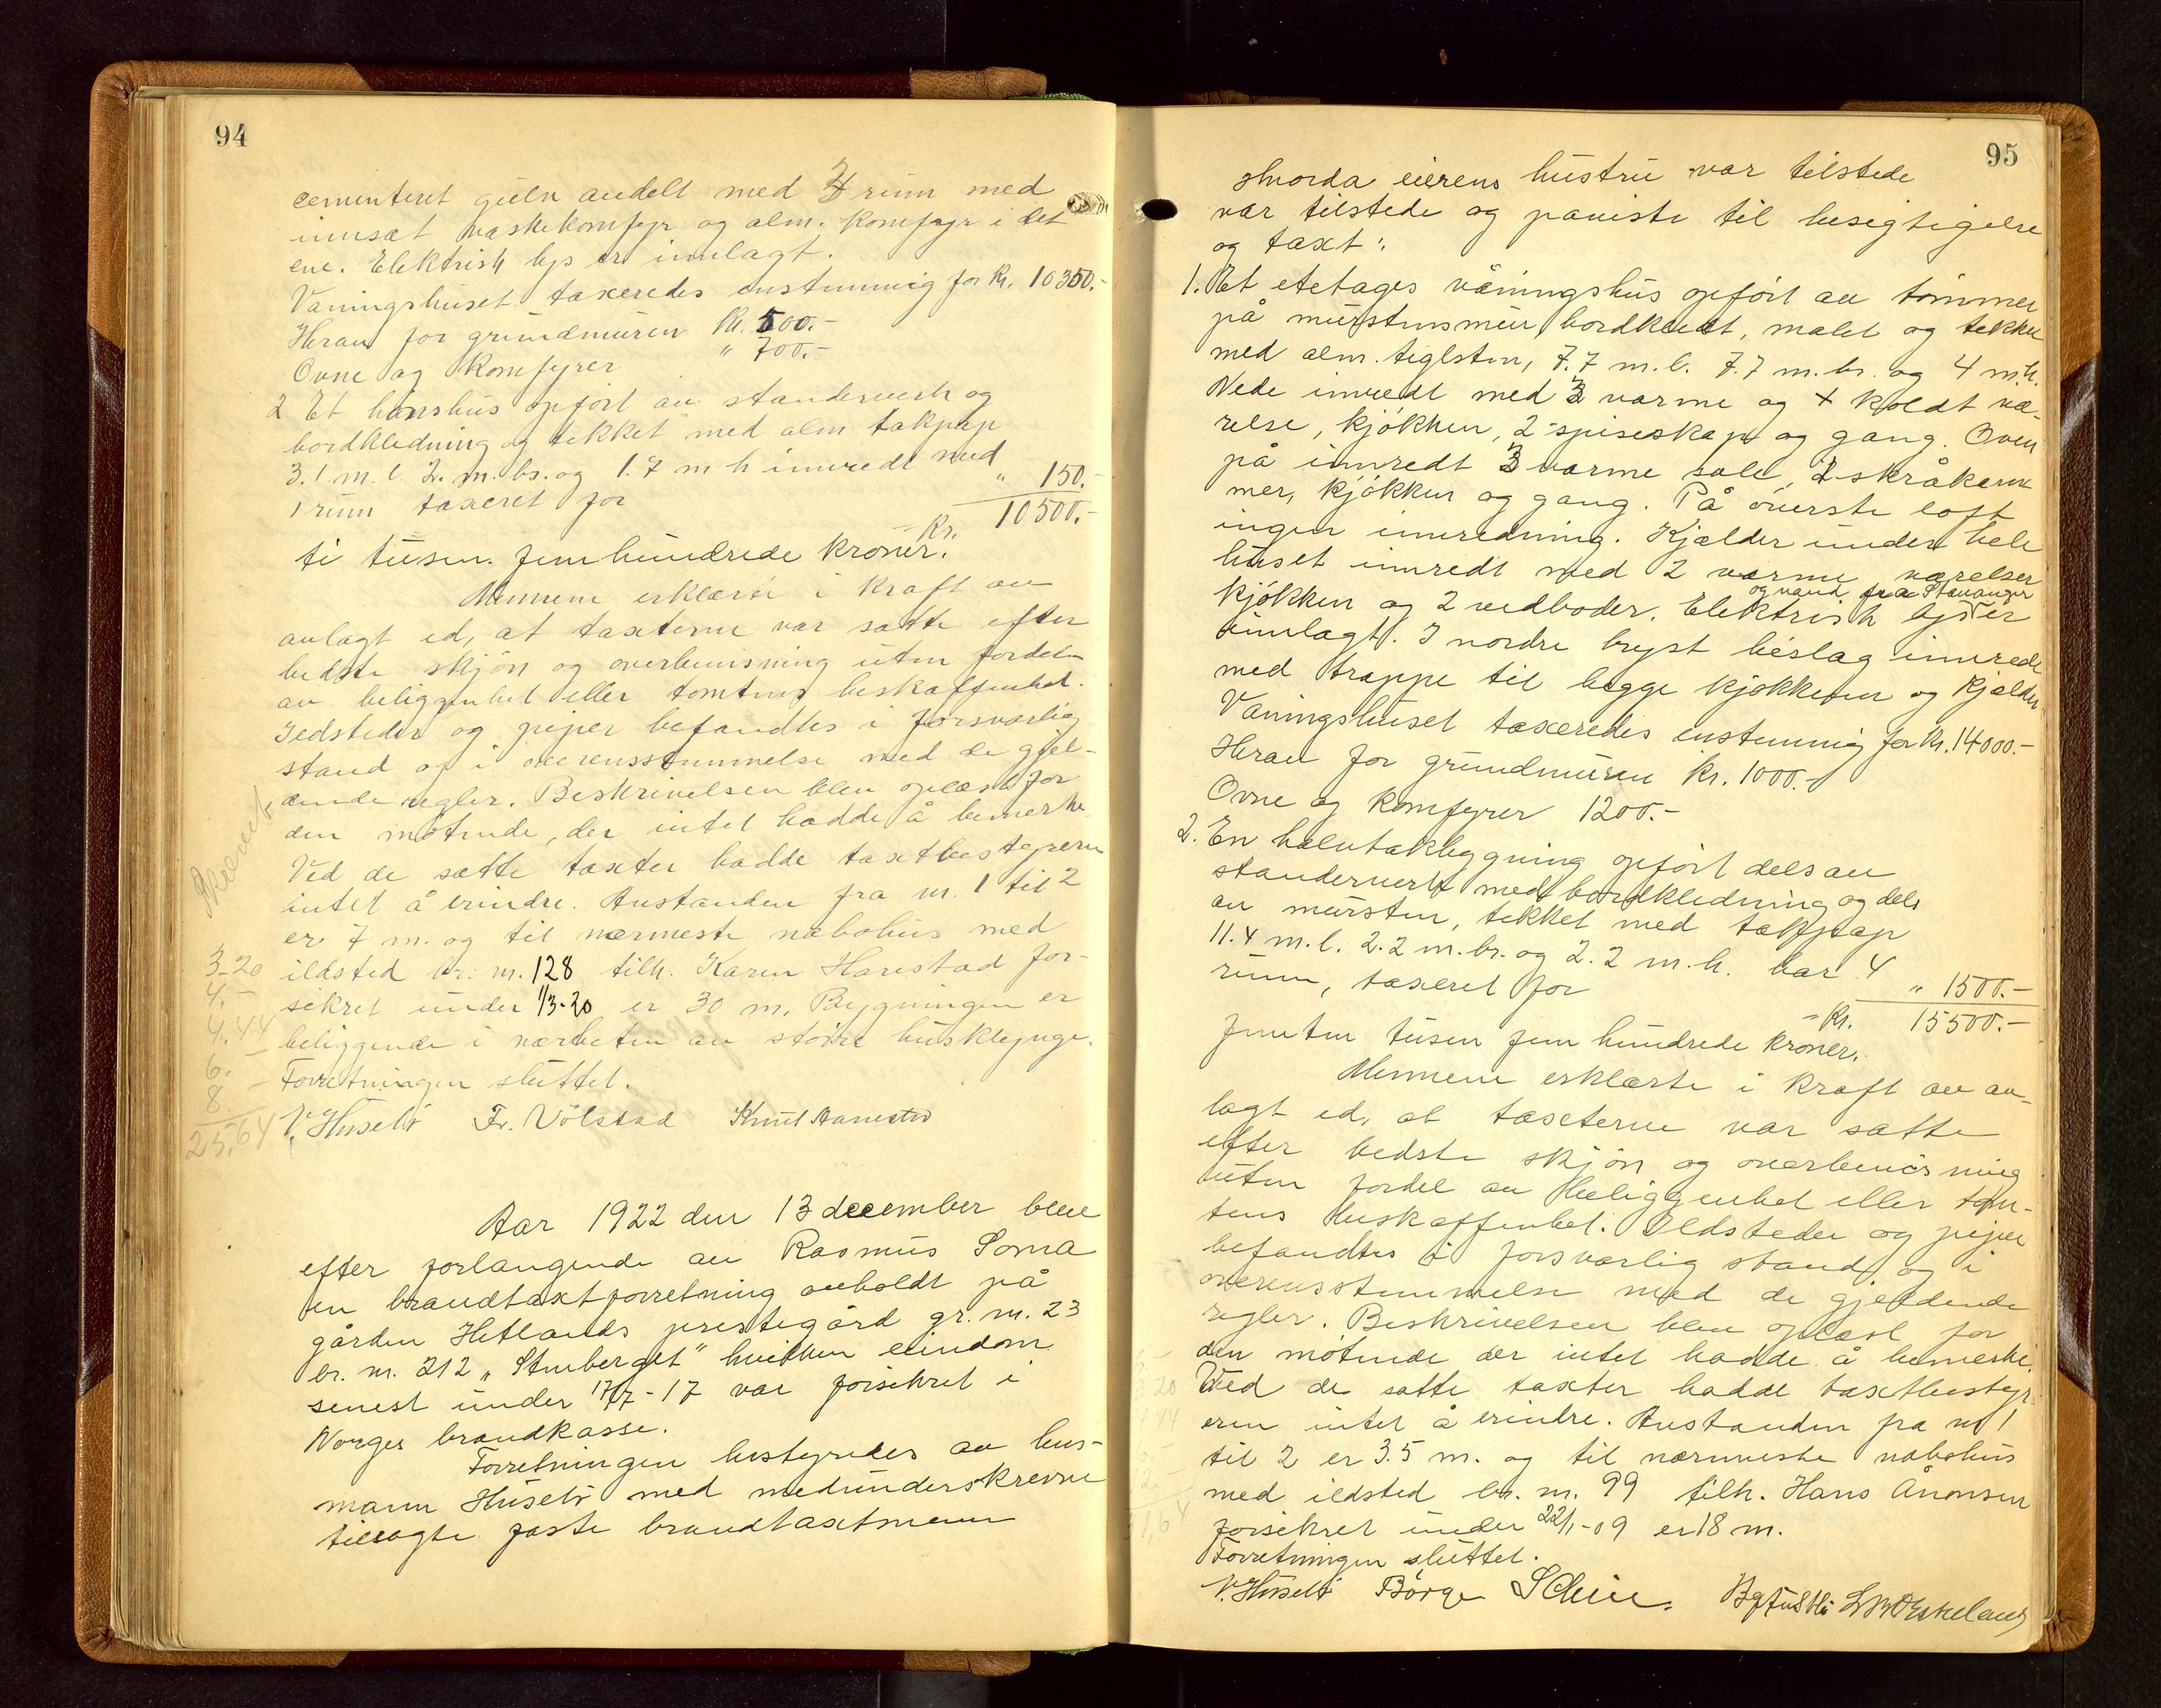 94
cementeret gulv avdelt med 4 rum med
innsat vaskekomfyr og alm. komfyr i det
ene. Elektrisk lys er innlagt.
Vaningshuset taxeredes enstemmig for Kr. 10350.-
Herav for grundmuren Kr. 500.-
Ovne og Komfyrer " 700.-
2 Et hønshus opført av standerverk og
bordkledning og tekket med alm takpap
3.1 m. l. 2. m. br. og 1.7 m h innredt med
1 rum taxeret for " 150.-
Kr. 10500.-
ti tusen femhundrede kroner.
Mennene erklærte i kraft av
avlagt ed, at taxterne var satte efter
bedste skjøn og overbevisning uten fordel
av beliggenhet eller tomtens beskaffenhet.
Ildsteder og piper befandtes i forsvarlig
stand og i overensstemmelse med de gjel-
dende regler. Beskrivelsen blev oplæst for
den møtende, der intet hadde å bemerke.
Ved de satte taxter hadde taxtbestyreren
intet å erindre. Avstanden fra nr. 1 til 2
er 7 m. og til nærmeste nabohus med
ildsted br. nr. 128 tilh. Karen Harestad for-
sikret under 1/3-20 er 30 m. Bygningen er
beliggende i nærheten av større husklynge.
Forretningen sluttet.
V. Husebø Fr. Vølstad Knut Harestad
Skrevet
3-20
4.-
4.44
6.-
8.-
25,64
Aar 1922 den 13 december blev
efter forlangende av Rasmus Soma
en brandtaxtforretning avholdt på
gården Hetlands prestegård gr. nr. 23
br. nr. 212 „Stenberget" hvilken eiendom
senest under 17/7-17 var forsikret i
Norges brandkasse.
Forretningen bestyredes av lens-
mann Husebø med medunderskrevne
tilsagte faste brandtaxtmenn
95
Hvorda eierens hustru var tilstede
var tilstede og paviste til besigtigelse
og taxt:
1. Et etetages våningshus opført av tømmer
på murstensmur bordkledt, malet og tekket
med alm. teglsten, 7.7 m. l. 7.7 m. br. og 4 m. h.
Nede innredt med 3 varme og + koldt væ-
relse, kjøkken, 2 spiseskap og gang. Oven
på innredt 3 varme sale, 2 skråkam
mer, kjøkken og gang. På øverste loft
ingen innredning. Kjelder under hele
huset innredt med 2 varme værelser
kjøkken og 2 vedboder. Elektrisk lys og vand fra Stavanger er
innlagt. I nordre bryst beslag innredt
med trappe til begge kjøkkener og kjelder.
Våningshuset taxeredes enstemmig for Kr. 14000.-
Herav for grundmuren kr. 1000.-
Ovne og komfyrer 1200.-
2. En halvtakbygning opført dels av
standerverk med bordkledning og dels
av mursten, tekket med takpap
11.4 m. l. 2.2 m. br. og 2.2 m. h. har 4
rum, taxeret for " 1500.-
Kr. 15500.-
femten tusen fem hundrede kroner.
Mennene erklærte i kraft av av-
lagt ed, at taxterne var satte
efter bedste skjøn og overbevisning
uten fordel av beliggenhet eller tom-
tens beskaffenhet. Ildsteder og piper
befandtes i forsvarlig stand og i
overensstemmelse med de gjeldende
regler. Beskrivelsen blev oplæst for
den møtende der intet hadde å bemerke.
Ved de satte taxter hadde taxtbestyr-
eren intet å erindre. Avstanden fra nr 1
til 2 er 3.5 m. og til nærmeste nabohus
med ildsted br. nr. 99 tilh. Hans Ånonsen
forsikret under 22/1-09 er 18 m.
Forretningen sluttet.
V. Husebø Børge